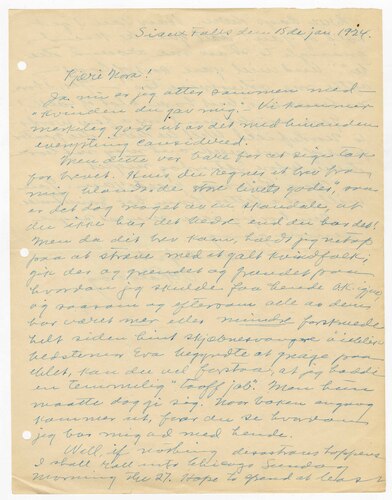 Sioux Falls den 15de jan. 1924.
Kjære Kora!
Ja, nu er jeg atter sammen med
"kvinden du gav mig". Vi kommer
merkelig godt ut av det med hinanden
everything considered.
Men dette var bare for at sige tak
for brevet. Hvis du regner et brev fra
mig blandt de store livets goder, saa
er det dog noget av en skandale, at
du ikke har det bedre end du har det!
Men da dit brev kom, holdt jeg netop
paa at stræve med et galt kvindfolk;
gik der og grundet og grundet paa
hvordan jeg skulde faa hende ok igjen,
og saasom og eftersom alle av dem
har været mer eller mindre forskruede
helt siden hint skjæbnesvangre øieblik
bedstemor Eva begyndte at
eplet, kan du vel forstaa, at jeg hadde
en temmelig "tooff job." Men hun
maatte dog gi sig. Naar boken engang
kommer ut, faar du se hvordan
jeg bar mig ad med hende.
Well, if nothing disastrous happens
I shall roll into Chicago Sunday
morning the 27. Hope to spend at least